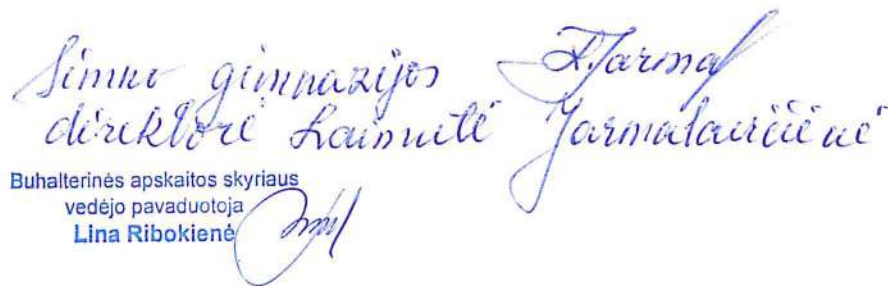 Simno gimnazijos
direktorė Laimutė Jarmalavičienė
Buhalterinės apskaitos skyriaus
vedėjo pavaduotoja
Lina Ribokienė